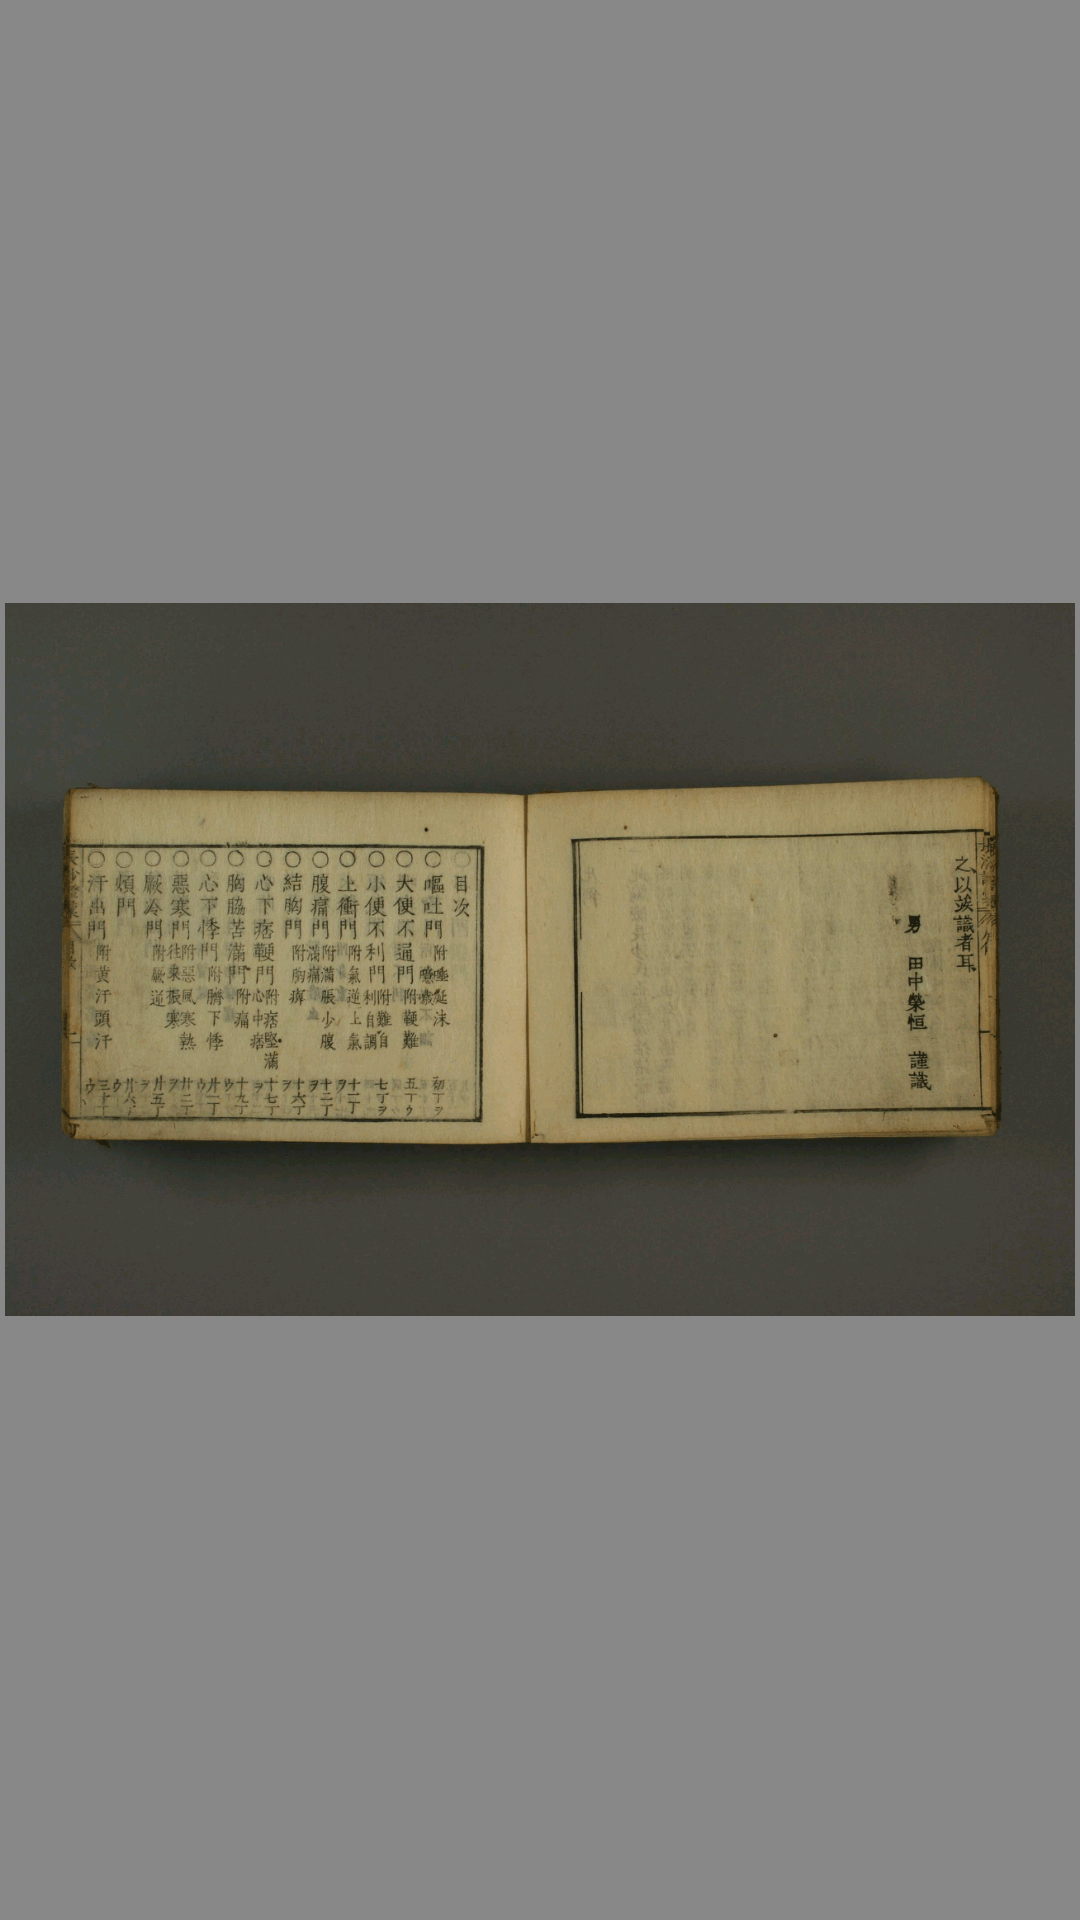 之以竢識者耳
男 田中榮恒 謹識
目次
○嘔吐門 附唾涎沫 噫噦 初丁ヲ
○大便不通門 附鞕難 五丁ウ
○小便不利門 附難自利自調 七丁ヲ
○上衝門 附氣逆上氣 十一丁ヲ
○腹痛門 附滿脹少腹滿痛 十二丁ヲ
○結胸門 附胸痺 十六丁ヲ
○心下痞鞕門 附痞堅滿心中痞 十七丁ヲ
○胸脇苦滿門 附痛 十九丁ウ
○心下悸門 附臍下悸 廾一丁ウ
○惡寒門 附惡風寒熱往來振寒 廾二丁ヲ
○厥冷門 附厥逆 廾五丁ヲ
○煩門 廾六丁ウ
○汗出門 附黄汗頭汗 三十丁ウ